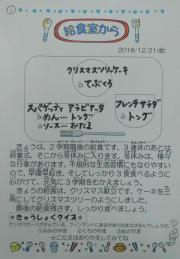 給食室から
2018/12/21(金)
クリスマスツリーケーキ
てぶくろ
スパゲッティ アラビアータ
めん…トング
ソース…おたま
フレンチサラダ
トング
きょうは、2学期最後の給食です。3連休のあとは
終業式、そこから冬休みに入ります。冬休みは、様々
な行事があります。不規則な生活習慣にもなりやすい
ので、早寝早起き、そしてしっかり3食食べるように
心がけて、元気に3学期をむかえましょう。
きょうの給食は、クリスマス献立です。ケーキを
にしてクリスマスツリーのようにしました。
最後の給食です。しっかり食べましょう。
★きゅうしょくクイズ★